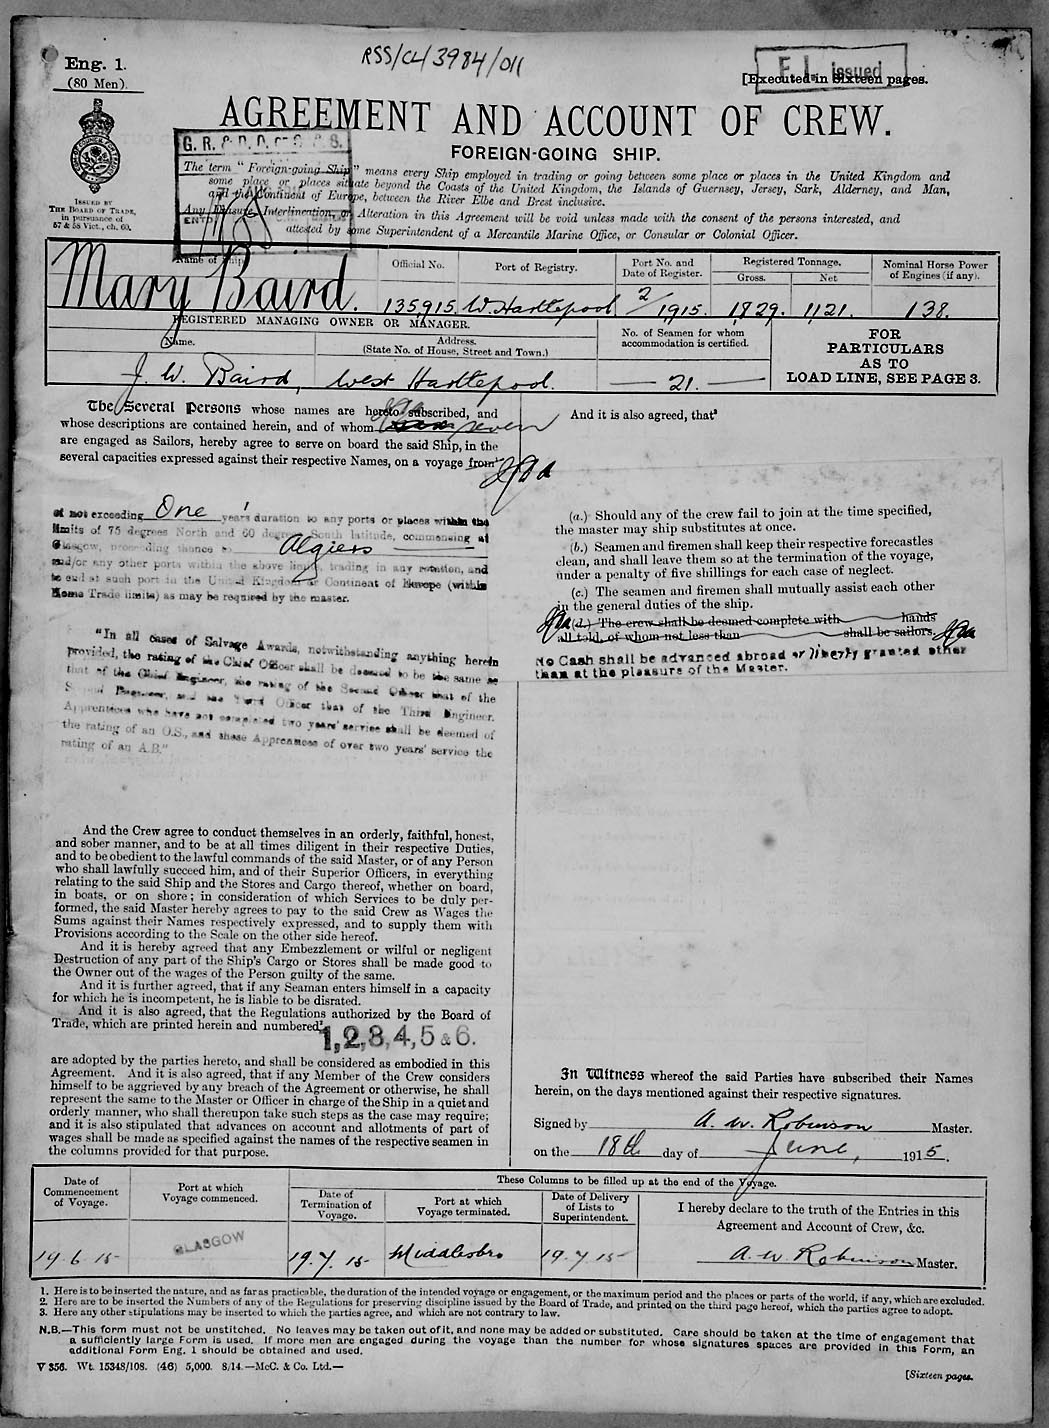 Eng. 1.
(80 Men).
RSS/CL/3984/011
E. I. issued
[Executed in Sixteen pages.
AGREEMENT AND ACCOUNT OF CREW.
FOREIGN-GOING SHIP.
G. R. & D. D. OF S. & S.
The term "Foreign-going Ship" means every Ship employed in trading or going between some place or places in the United Kingdom and
some place or places situate beyond the Coasts of the United Kingdom, the Islands of Guernsey, Jersey, Sark, Alderney, and Man,
and the Continent of Europe, between the River Elbe and Brest inclusive.
Any Erasure, Interlineation, or Alteration in this Agreement will be void unless made with the consent of the persons interested, and
attested by some Superintendent of a Mercantile Marine Office, or Consular or Colonial Officer.
ISSUED BY
THE BOARD OF TRADE,
in pursuance of
57 & 58 Vict., ch. 60.
Name of Ship. Official No. Port of Registry. Port No. and Date of Register. Registered Tonnage. Gross. Net Nominal Horse Power of Engines (if any).
Mary Baird. 135,915. W. Hartlepool 2/1915. 1829. 1121. 138.
REGISTERED MANAGING OWNER OR MANAGER.
Name. Address.
(State No. of House, Street and Town.)
No. of Seamen for whom
accommodation is certified.
FOR
PARTICULARS
AS TO
LOAD LINE, SEE PAGE 3.
J. W. Baird, West Hartlepool. — 21. —
The Several Persons whose names are hereto subscribed, and
whose descriptions are contained herein, and of whom seven
are engaged as Sailors, hereby agree to serve on board the said Ship, in the
several capacities expressed against their respective Names, on a voyage from¹
of not exceeding One years' duration to any ports or places within the
limits of 75 degrees North and 60 degrees South latitude, commencing at
Glasgow, proceeding thence to Algiers
and/or any other ports within the above limits trading in any rotation, and
to end at such port in the United Kingdom or Continent of Europe (within
Home Trade limits) as may be required by the master.
"In all cases of Salvage Awards, notwithstanding anything herein
provided, the rating of the Chief Officer shall be deemed to be the same as
that of the Chief Engineer, the rating of the Second Officer that of the
Second Engineer, and the Third Officer that of the Third Engineer.
Apprentices who have not completed two years' service shall be deemed of
the rating of an O.S., and those Apprentices of over two years' service the
rating of an A.B."
And the Crew agree to conduct themselves in an orderly, faithful, honest,
and sober manner, and to be at all times diligent in their respective Duties,
and to be obedient to the lawful commands of the said Master, or of any Person
who shall lawfully succeed him, and of their Superior Officers, in everything
relating to the said Ship and the Stores and Cargo thereof, whether on board,
in boats, or on shore; in consideration of which Services to be duly per-
formed, the said Master hereby agrees to pay to the said Crew as Wages the
Sums against their Names respectively expressed, and to supply them with
Provisions according to the Scale on the other side hereof.
And it is hereby agreed that any Embezzlement or wilful or negligent
Destruction of any part of the Ship's Cargo or Stores shall be made good to
the Owner out of the wages of the Person guilty of the same.
And it is further agreed, that if any Seaman enters himself in a capacity
for which he is incompetent, he is liable to be disrated.
And it is also agreed, that the Regulations authorized by the Board of
Trade, which are printed herein and numbered²
1, 2, 3, 4, 5 & 6.
are adopted by the parties hereto, and shall be considered as embodied in this
Agreement. And it is also agreed, that if any Member of the Crew considers
himself to be aggrieved by any breach of the Agreement or otherwise, he shall
represent the same to the Master or Officer in charge of the Ship in a quiet and
orderly manner, who shall thereupon take such steps as the case may require;
and it is also stipulated that advances on account and allotments of part of
wages shall be made as specified against the names of the respective seamen in
the columns provided for that purpose.
And it is also agreed, that³
(a.) Should any of the crew fail to join at the time specified,
the master may ship substitutes at once.
(b.) Seamen and firemen shall keep their respective forecastles
clean, and shall leave them so at the termination of the voyage,
under a penalty of five shillings for each case of neglect.
(c.) The seamen and firemen shall mutually assist each other
in the general duties of the ship.
(d.) The crew shall be deemed complete with hands
all told, of whom not less than shall be sailors.
No Cash shall be advanced abroad or liberty granted other
than at the pleasure of the Master.
In Witness whereof the said Parties have subscribed their Names
herein, on the days mentioned against their respective signatures.
Signed by A. W. Robinson Master.
on the 18th day of June, 1915.
These Columns to be filled up at the end of the Voyage.
Date of Commencement of Voyage. Port at which Voyage commenced. Date of Termination of Voyage. Port at which Voyage terminated. Date of Delivery of Lists to Superintendent.
I hereby declare to the truth of the Entries in this
Agreement and Account of Crew, &c.
19.6.15 GLASGOW 19.7.15 Middlesbro 19.7.15 A. W. Robinson Master.
1. Here is to be inserted the nature, and as far as practicable, the duration of the intended voyage or engagement, or the maximum period and the places or parts of the world, if any, which are excluded.
2. Here are to be inserted the Numbers of any of the Regulations for preserving discipline issued by the Board of Trade, and printed on the third page hereof, which the parties agree to adopt.
3. Here any other stipulations may be inserted to which the parties agree, and which are not contrary to law.
N.B.—This form must not be unstitched. No leaves may be taken out of it, and none may be added or substituted. Care should be taken at the time of engagement that
a sufficiently large Form is used. If more men are engaged during the voyage than the number for whose signatures spaces are provided in this Form, an
additional Form Eng. 1 should be obtained and used.
V 356. Wt. 15348/108. (46) 5,000. 8/14.—McC. & Co. Ltd.—
[Sixteen pages.